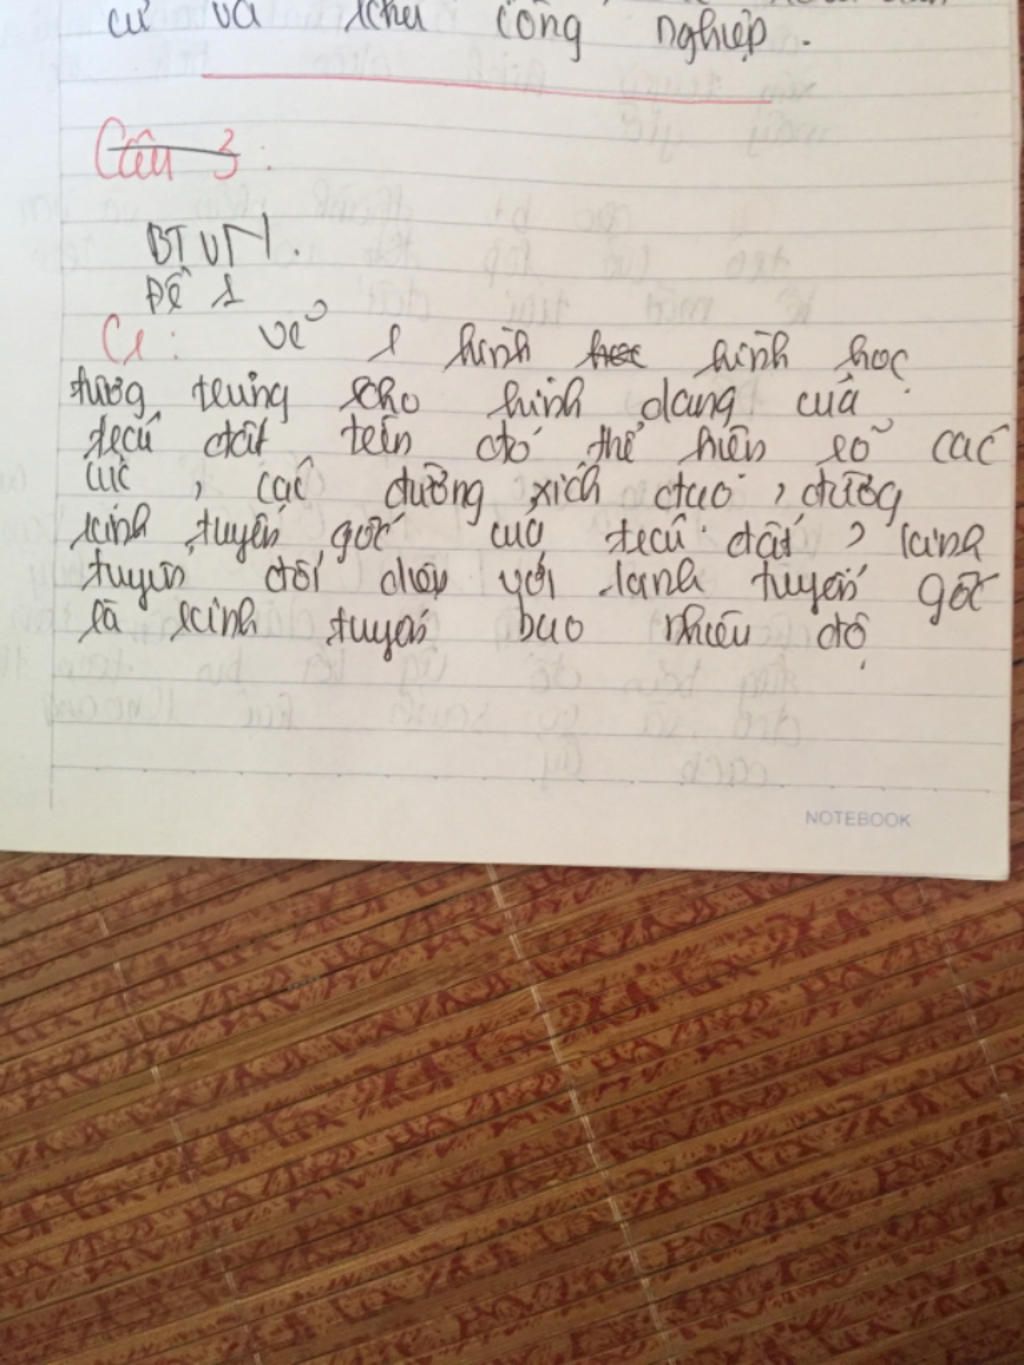 cư và khu công nghiệp.
Câu 3:
BTVN.
Đề 1
C1: vẽ 1 hình học hình học
tượng trưng cho hình dạng của
trái đất trên đó thể hiện rõ các
cực, các đường xích đạo, đường
kinh tuyến gốc của trái đất, kinh
tuyến đối diện với kinh tuyến gốc
là kinh tuyến bao nhiêu độ
NOTEBOOK